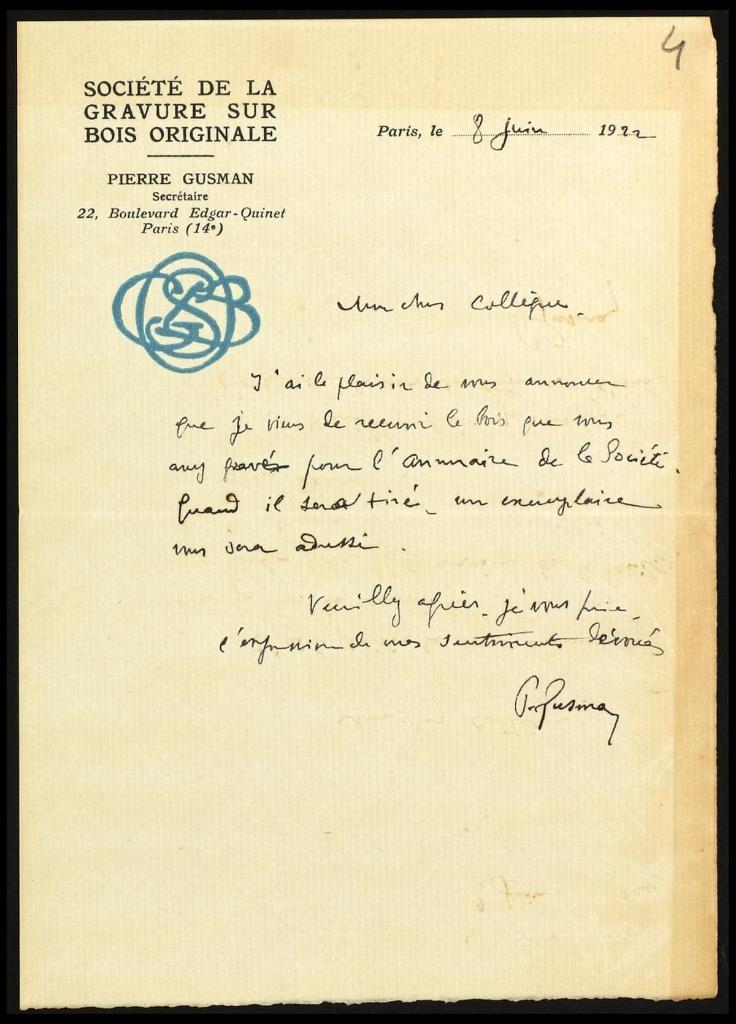 4
SOCIÉTÉ DE LA
GRAVURE SUR
BOIS ORIGINALE
PIERRE GUSMAN
Secrétaire
22, Boulevard Edgar-Quinet
Paris (14e)
Paris, le 8 juin 1922
SGBO
Mon cher Collègue.
J'ai le plaisir de vous annoncer
que je viens de recevoir le bois que vous
avez gravé pour l'annuaire de la Société.
Quand il sera tiré, un exemplaire
vous sera adressé.
Veuillez agréer, je vous prie,
l'expression de mes sentiments dévoués
P. Gusman